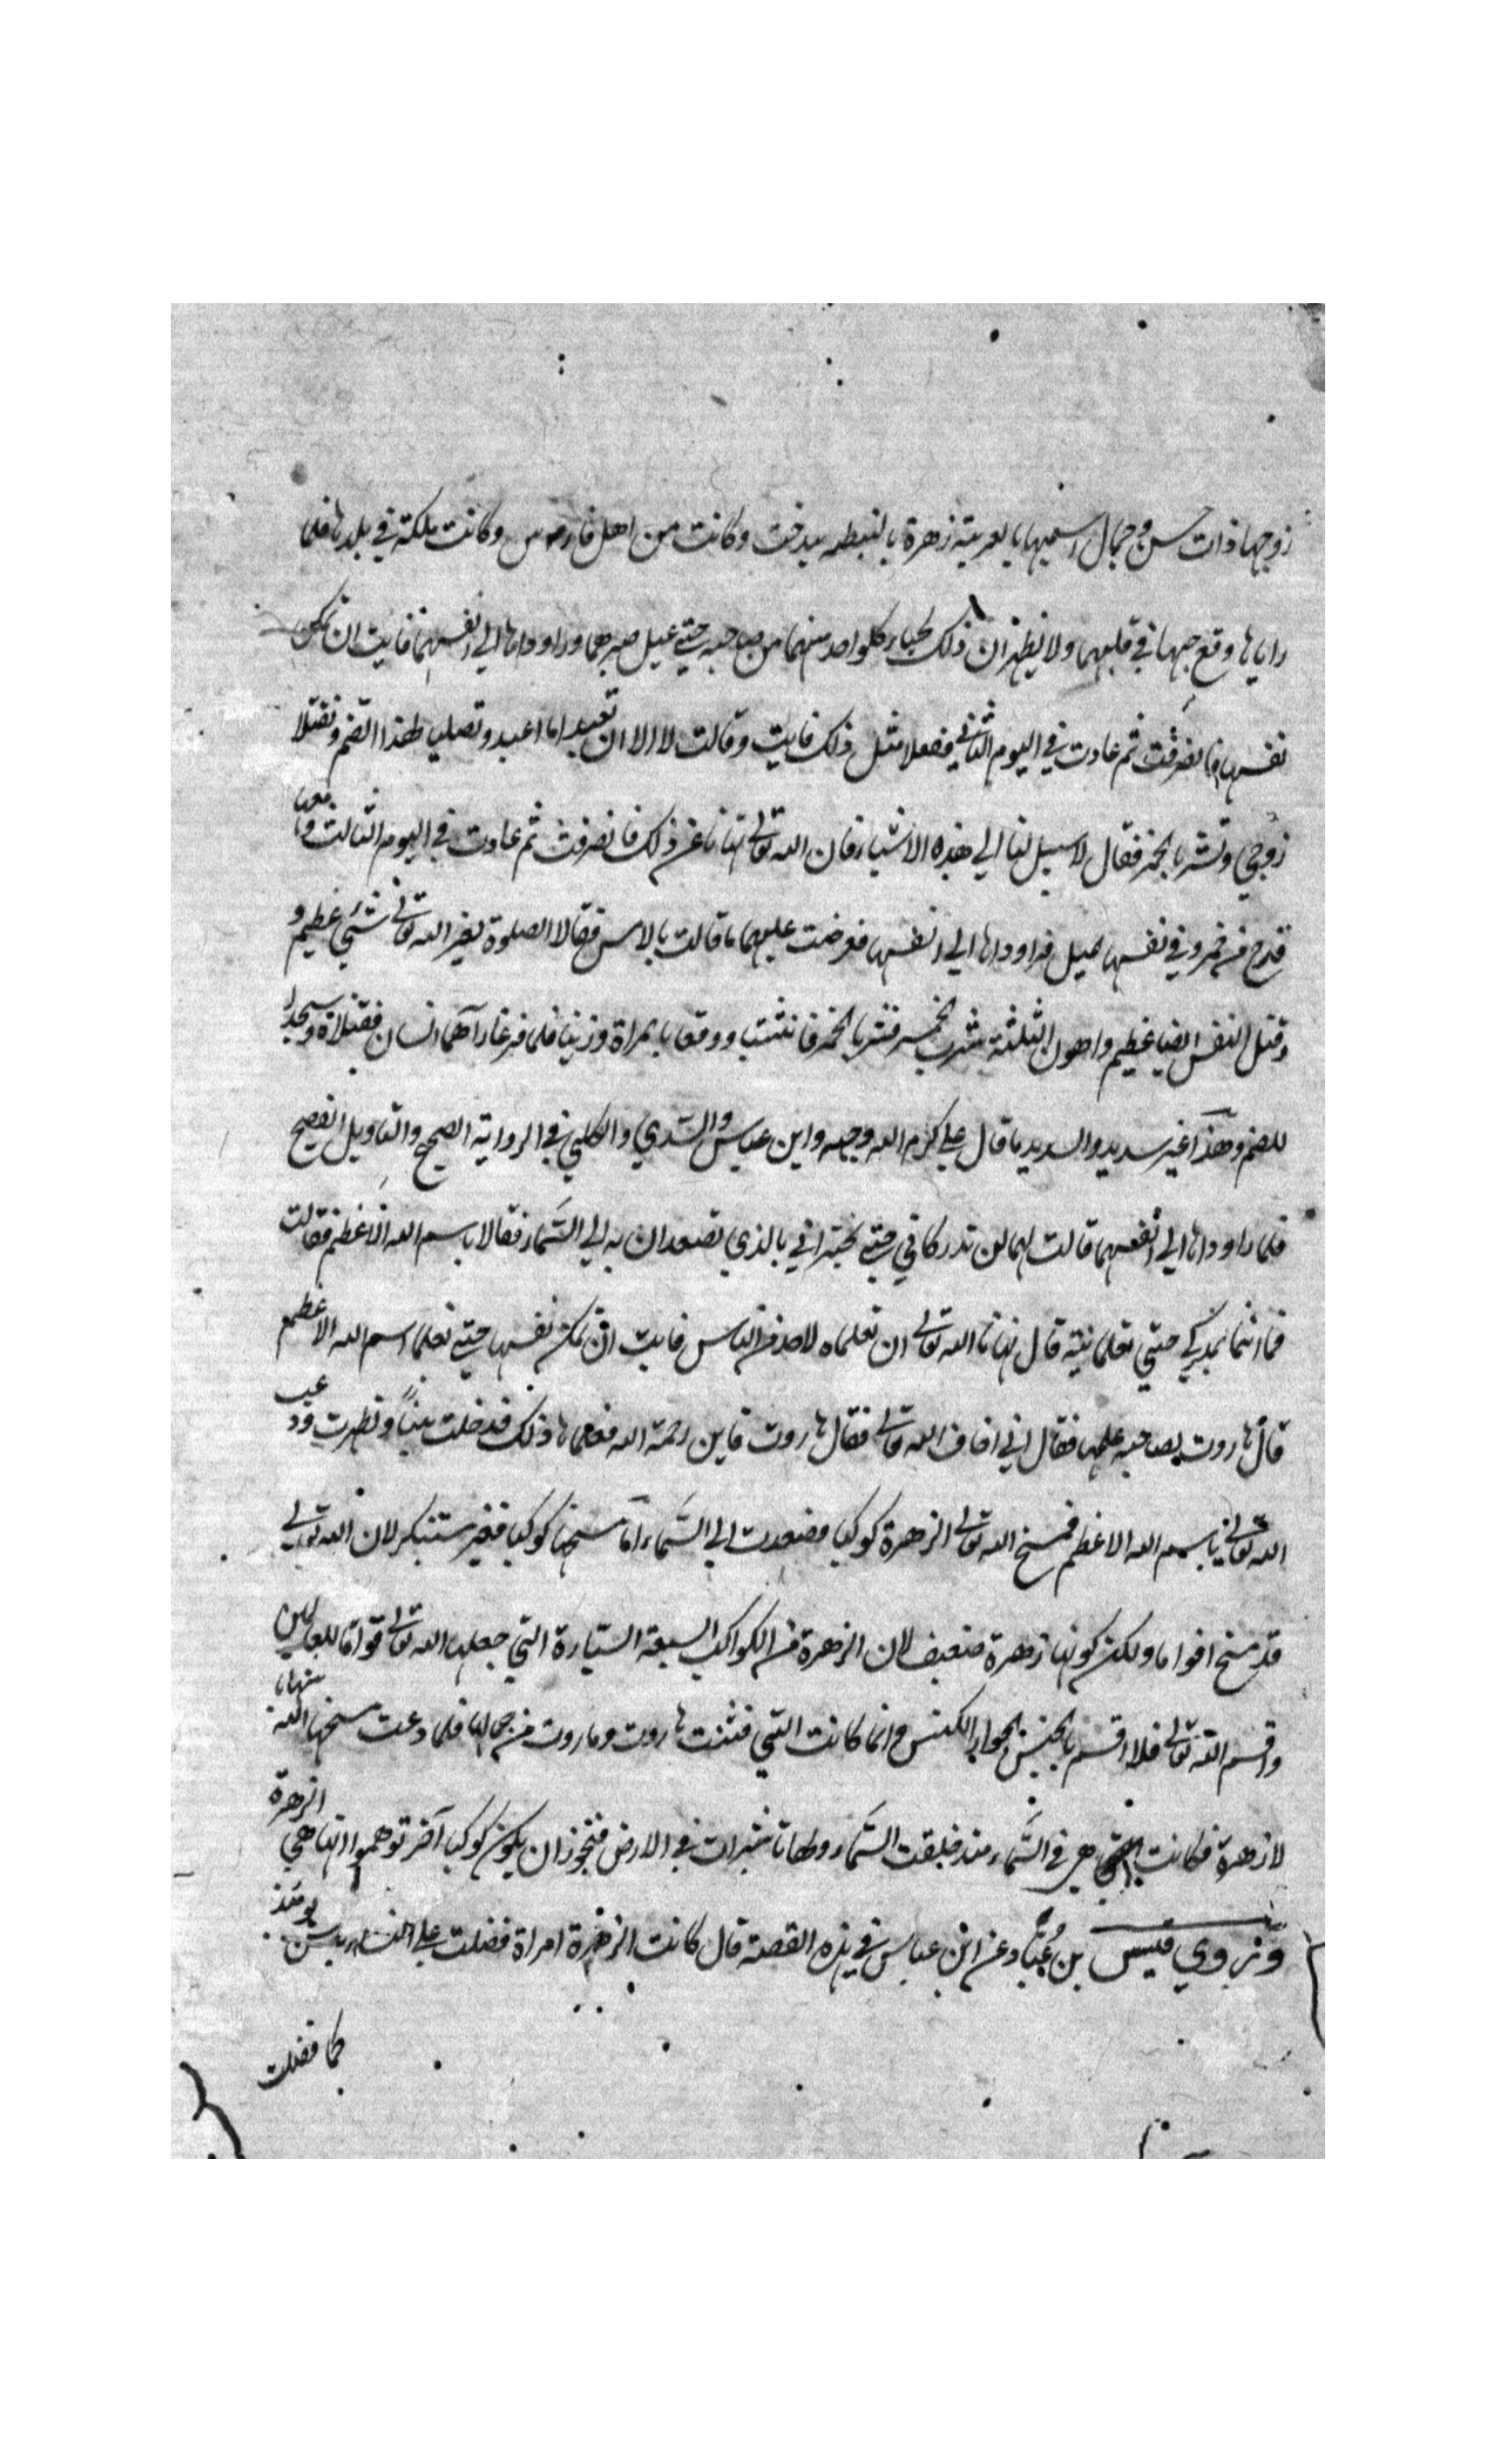 زوجها ذات حسن وجمال اسمها بالعربية زهرة بالنبطيه بيدخت وكانت من اهل فارس وكانت ملكة في بلدها فلما
راياها وقع حبها في قلبهما ولا يظهران ذلك لحياء كلواحد منهما من صاحبه حتي عيل صبرهما وراوداها الي انفسهما فابت ان تمكن
نفسها فانصرفت ثم عادت في اليوم الثاني ففعلا مثل ذلك فابت وقالت لا الا ان تعبدا ما اعبد وتصليا لهذا الصنم وتقتلا
زوجي وتشربا الخمر فقال لا سبيل لنا الي هذه الاشياء فان الله تعالي نهانا عن ذلك فانصرفت ثم عادت في اليوم الثالث ومعها
قدح من خمر وفي نفسها ميل فراوداها الي انفسها فعرضت عليهما ما قالت بالامس فقالا الصلوة لغير الله تعالي شيء عظيم و
وقتل النفس ايضا عظيم واهون الثلثة شرب الخمر فشربا الخمر فانتشيا ووقعا بالمراة وزنيا فلما فرغا رآهما انسان فقتلاه وسجدا
للصنم وهذا غير سديد والسديد ما قال علي كرم الله وجهه وابن عباس والسدي والكلبي في الرواية الصحيح والتاويل الفصيح
فلما راوداها الي انفسهما قالت لهما لن تدركاني حتي تخبراني بالذي تصعدان به الي السماء فقالا باسم الله الاعظم فقالت
فما انتما بمدركي حتي تعلمانيه قال نهانا الله تعالي ان نعلماه لاحد من الناس فابت ان تمكن نفسها حتي تعلما اسم الله الاعظم
قال هاروت لصاحبه علمها فقال اني اخاف الله تعالي فقال هاروت فاين رحمة الله فعلماها ذلك فدخلت بيتاً وتطهرت ودعت
الله تعالي باسم الله الاعظم فمسخ الله تعالي الزهرة كوكبا فصعدت الي السماء اما مسخها كوكبا فغير مستنكر لان الله تعالي
قد مسخ اقواما ولكن كونها زهرة ضعيف لان الزهرة من الكواكب السبعة السيارة التي جعلها الله تعالي قواما للعالمين
واقسم الله تعالي فلا اقسم بالخنس الجوار الكنس وانما كانت التي فتنت هاروت وماروت من جمالها فلما دعت مسخها الله شهابا
لا زهرة فكانت هي في السماء منذ خلقت السماء ولها تاثيرات في الارض فيجوز ان يكون كوكبا آخر توهموا انها هي الزهرة
وزوي قيس بن عُبَاد عن ابن عباس في هذه القصة قال كانت الزهرة امراة فضلت علي النساء بحسن يومئذ
كما فضلت